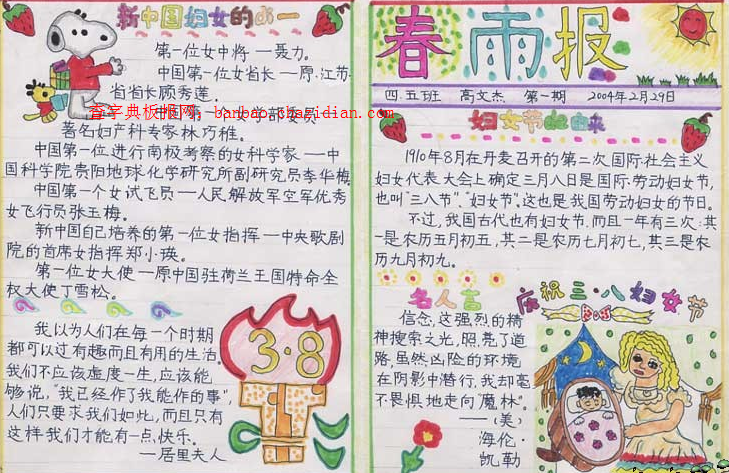 新中国妇女的 一
第一位女中将一聂力。
中国第一位女省长一原·江苏
省省长顾秀莲。
查字典板报网: banbao.chazidian.com
中国第一个女学部委员一
著名妇产科专家林巧稚。
中国第一位进行南极考察的女科学家一中
国科学院贵阳地球化学研究所副研究员李华梅
中国第一个女试飞员一人民解放军空军优秀
女飞行员张玉梅。
新中国自己培养的第一位女指挥一中央歌剧
院的首席女指挥郑小瑛。
第一位女大使一原中国驻荷兰王国特命全
权大使丁雪松。
我以为人们在每一个时期
都可以过有趣而且有用的生活。
我们不应该虚度一生,应该能
够说,"我已经作了我能作的事",
人们只要求我们如此,而且只有
这样我们才能有一点快乐。
一居里夫人
3·8
春雨报
四.五班 高文杰 第一期 2004年2月29日
妇女节的由来
1910年8月在丹麦召开的第二次国际社会主义
妇女代表大会上确定三月八日是国际劳动妇女节,
也叫"三八节"."妇女节",这也是我国劳动妇女的节日。
不过,我国古代也有妇女节.而且一年有三次:其
一是农历五月初五,其二是农历七月初七,其三是农
历九月初九。
名人言
信念,这强烈的精
神搜索之光,照亮了道
路,虽然凶险的环境
在阴影中潜行,我却毫
不畏惧地走向"魔林"。
——(美)
海伦·
凯勒
庆祝三·八妇女节